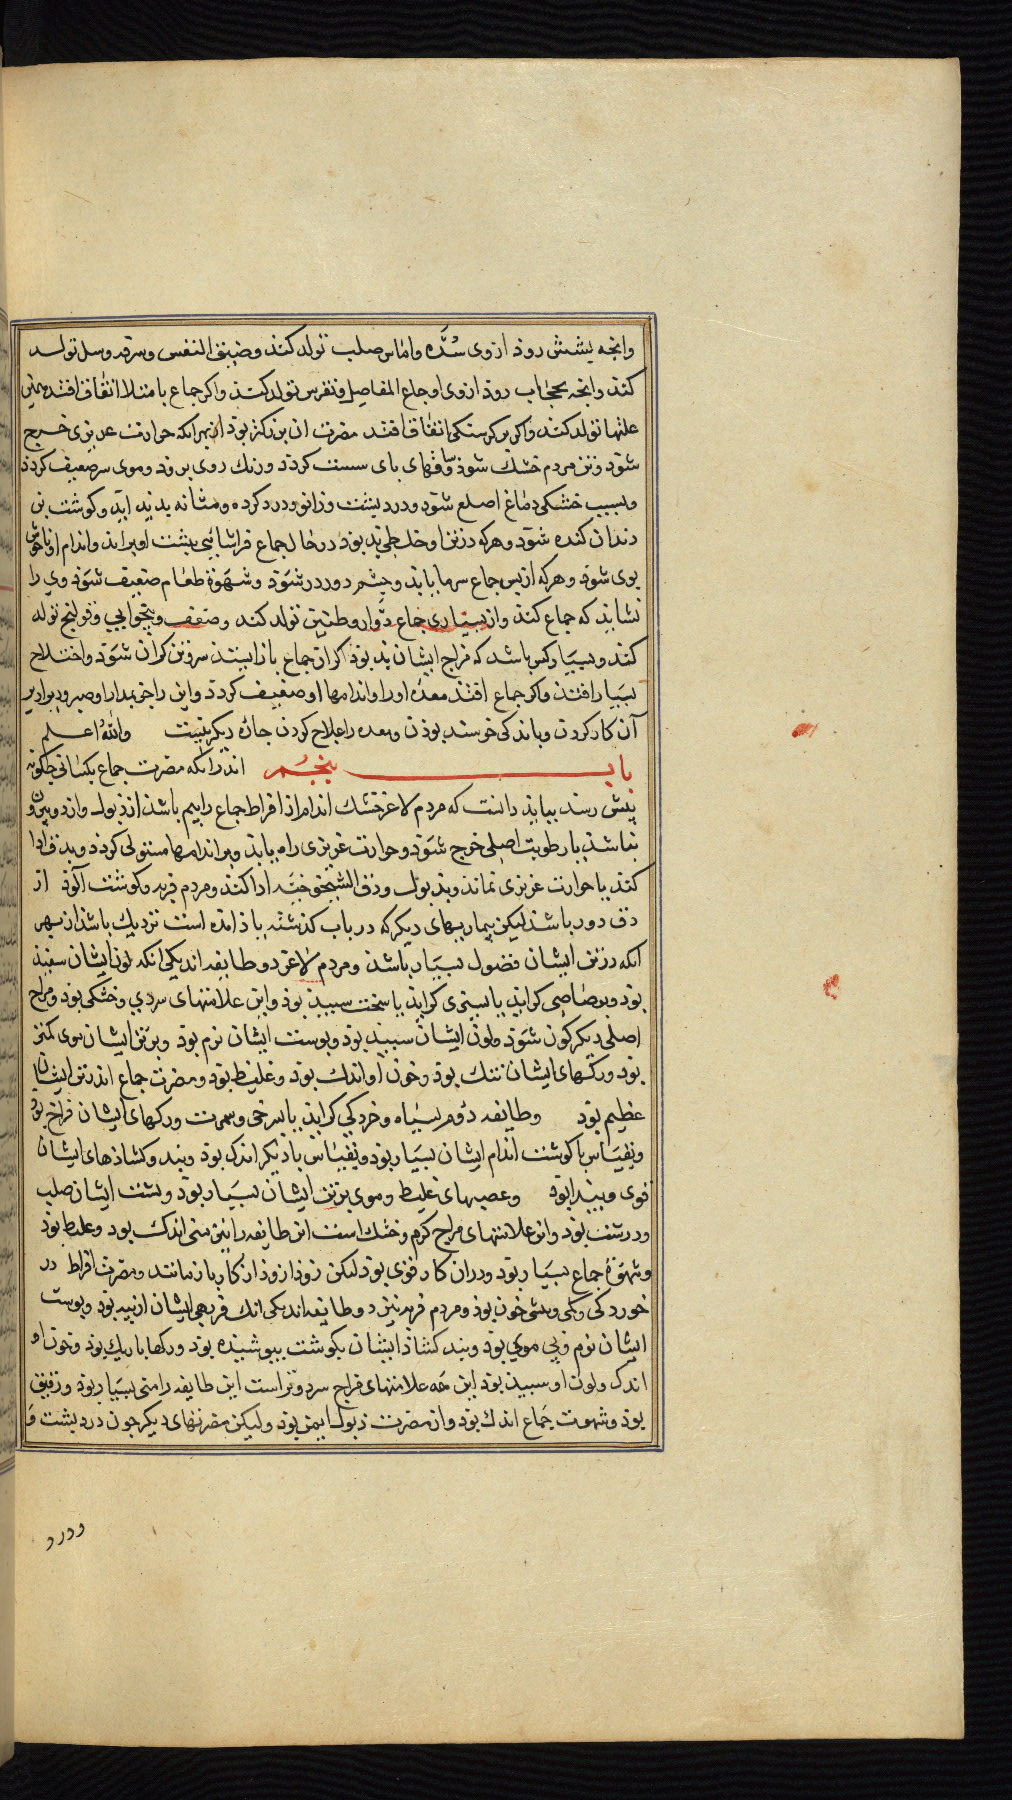 وانچه بشش روذ ازوی سُدّه واماس صلب تولد کند وضیق النفس وسرفه وسل تولد
کند وانچه بحجاب روذ ازوی اوجاع المفاصل ونقرس تولد کند واکر جماع با متلا اتفاق افتد همین
علتها تولد کند واکر بر کرسنکی اتفاق افتد مضرت ان بزرکتر بوذ از بهر انکه حرارت غریزی خرج
شوذ وتن مردم خشک شوذ وساقهای پای سست کردد ورنک روی برود وموی سر ضعیف کردد
وبسبب خشکی دماغ اصلع شوذ ودرد پشت وزانو ودرد کرده ومثانه پدید اید وکوشت بن
دندان کنده شوذ وهرکه در تن او خلطی بد بوذ در حال جماع فراشائی بپشت او براند واندام او ناخوش
بوی شوذ وهرکه از پس جماع سرما یابد وچشم دور در شوذ وشهوة طعام ضعیف شوذ وی را
نشاید که جماع کند واز بسیاری جماع دوار وطنین تولد کند وضعف وبیخوابی وقولنج تولد
کند وبسیار کس باشد که مزاج ایشان بد بوذ اکر از جماع باز ایستند سر وتن کران شوذ واختلاج
بسیار افتذ واکر جماع افتد معده او را واندامها او ضعیف کردد واین را جز بمدارا وصبر
آن کار کردن وباندکی خرسند بوذن ومعده را علاج کردن چاره دیکر نیست والله اعلم
باب پنجم اندر انکه مضرت جماع بکسانی چکونه
بیش رسد بباید دانست که مردم لاغر خشک اندام از افراط جماع را بیم باشد از ذبول واز دو بیرون
نباشد یا رطوبت اصلی خرج شوذ وحرارت غریزی راه یابد وبر اندامها مستولی کردد وبدق ادا
کند یا حرارت غریزی نماند وبذبول ودق الشیخوخیه ادا کند ومردم فربه وکوشت آلوذ از
دق دور باشد لیکن بیماریهای دیکر که در باب کذشته یاذ امده است نزدیک باشد از بهر
انکه در تن ایشان فضول بسیار باشد ومردم لاغر دو طایفه اند یکی انکه لون ایشان سفید
بوذ وبرصاصی کراید یا بسبزی کراید یا سخت سپید بوذ واین علامتهای سردی وخشکی بوذ ومزاج
اصلی دیکرکون شوذ ولون ایشان سپید بوذ وپوست ایشان نرم بوذ وبر تن ایشان موی کمتر
بوذ ورکهای ایشان تنک بوذ وخون او اندک بوذ وغلیظ بوذ ومضرت جماع اندر تن ایشان
عظیم بوذ وطایفه دوم بسیاه وخردکی کراید یا سرخی وسمرت ورکهای ایشان فراخ بوذ
وبقیاس با کوشت اندام ایشان بسیار بوذ وبقیاس با دیکر اندک بوذ وبند وکشاذهای ایشان
قوی وپیدا بوذ وعصبهای غلیظ وموی بر تن ایشان بسیار بوذ وپشت ایشان صلب
ودرشت بوذ واین علامتهای مزاج کرم وخشک است این طایفه را نیز منی اندک بود وغلیظ بوذ
وشهوة جماع بسیار بوذ ودران کار قوی بوذ لیکن زوذ از وذ ان کار باز مانند ومضرت افراط در
خوردکی وکمی وبیشی خون بوذ ومردم فربه نیز دو طایفه اند یکی انک فربهی ایشان از پیه بوذ وپوست
ایشان نرم وبی موی بوذ وبند کشاذ ایشان بکوشت بپوشیذه بوذ ورکها باریک بوذ وخون او
اندک ولون او سپید بوذ این همه علامتهای مزاج سرد وتر است این طایفه را منی بسیار بوذ ورقیق
بوذ وشهوت جماع اندک بوذ واز مضرت ذبول ایمن بوذ ولیکن مضرتهای دیکر چون درد پشت و
ودرد